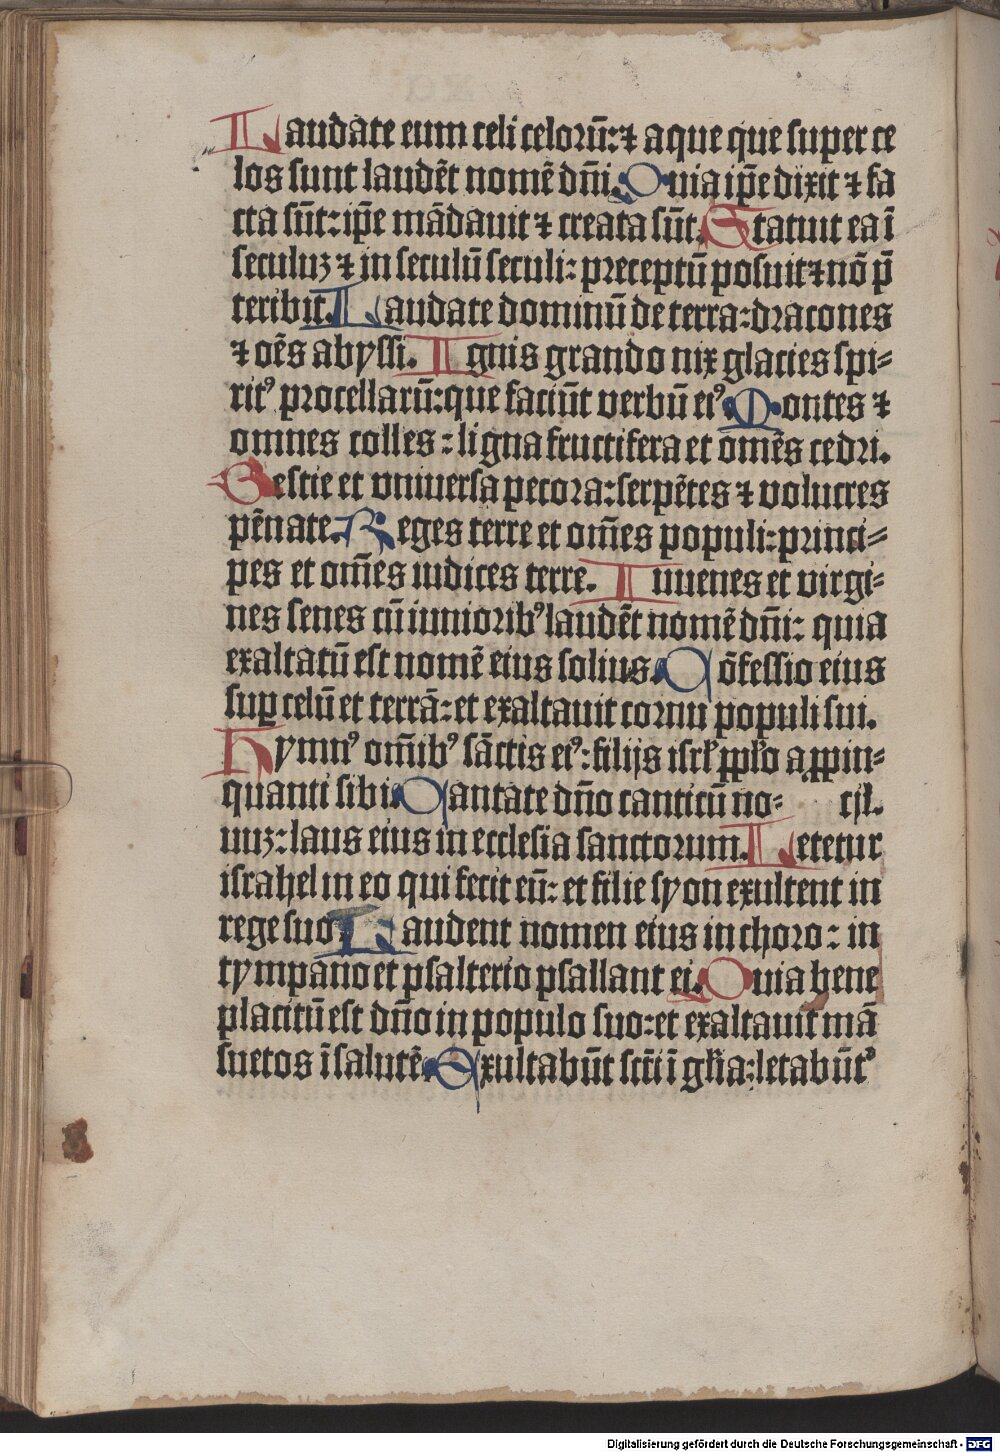 Laudate eum celi celorū: ⁊ aque que super ce
los sunt laudēt nomē dn̄i. Quia ip̄e dixit ⁊ fa
cta sūt: ip̄e mādauit ⁊ creata sūt. Statuit ea ī
seculuꝫ ⁊ in seculū seculi: preceptū posuit ⁊ nō p̄
teribit. Laudate dominū de terra: dracones
⁊ oēs abyssi. Ignis grando nix glacies spi-
ritꝰ procellarū: que faciūt verbū eiꝰ. Montes ⁊
omnes colles: ligna fructifera et omēs cedri.
Bestie et vniuersa pecora: serpētes ⁊ volucres
pēnate. Reges terre et om̄es populi: princi-
pes et om̄es iudices terre. Iuuenes et virgi-
nes senes cū iunioribꝰ laudēt nomē dn̄i: quia
exaltatū est nomē eius solius. Cōfessio eius
suꝑ celū et terrā: et exaltauit cornu populi sui.
Hymnꝰ om̄ibꝰ sāctis eiꝰ: filijs isrl̄ ꝓpl̄o aꝓpin-
quanti sibi. Cantate dn̄o canticū no- cxlix.
uuꝫ: laus eius in ecclesia sanctorum. Letetur
israhel in eo qui fecit eū: et filie syon exultent in
rege suo. Laudent nomen eius in choro: in
tympano et psalterio psallant ei. Quia bene
placitū est dn̄o in populo suo: et exaltauit mā
suetos ī salutē. Exultabūt sct̄i ī gl̄ia: letabūtᷣ
Digitalisierung gefördert durch die Deutsche Forschungsgemeinschaft - DFG